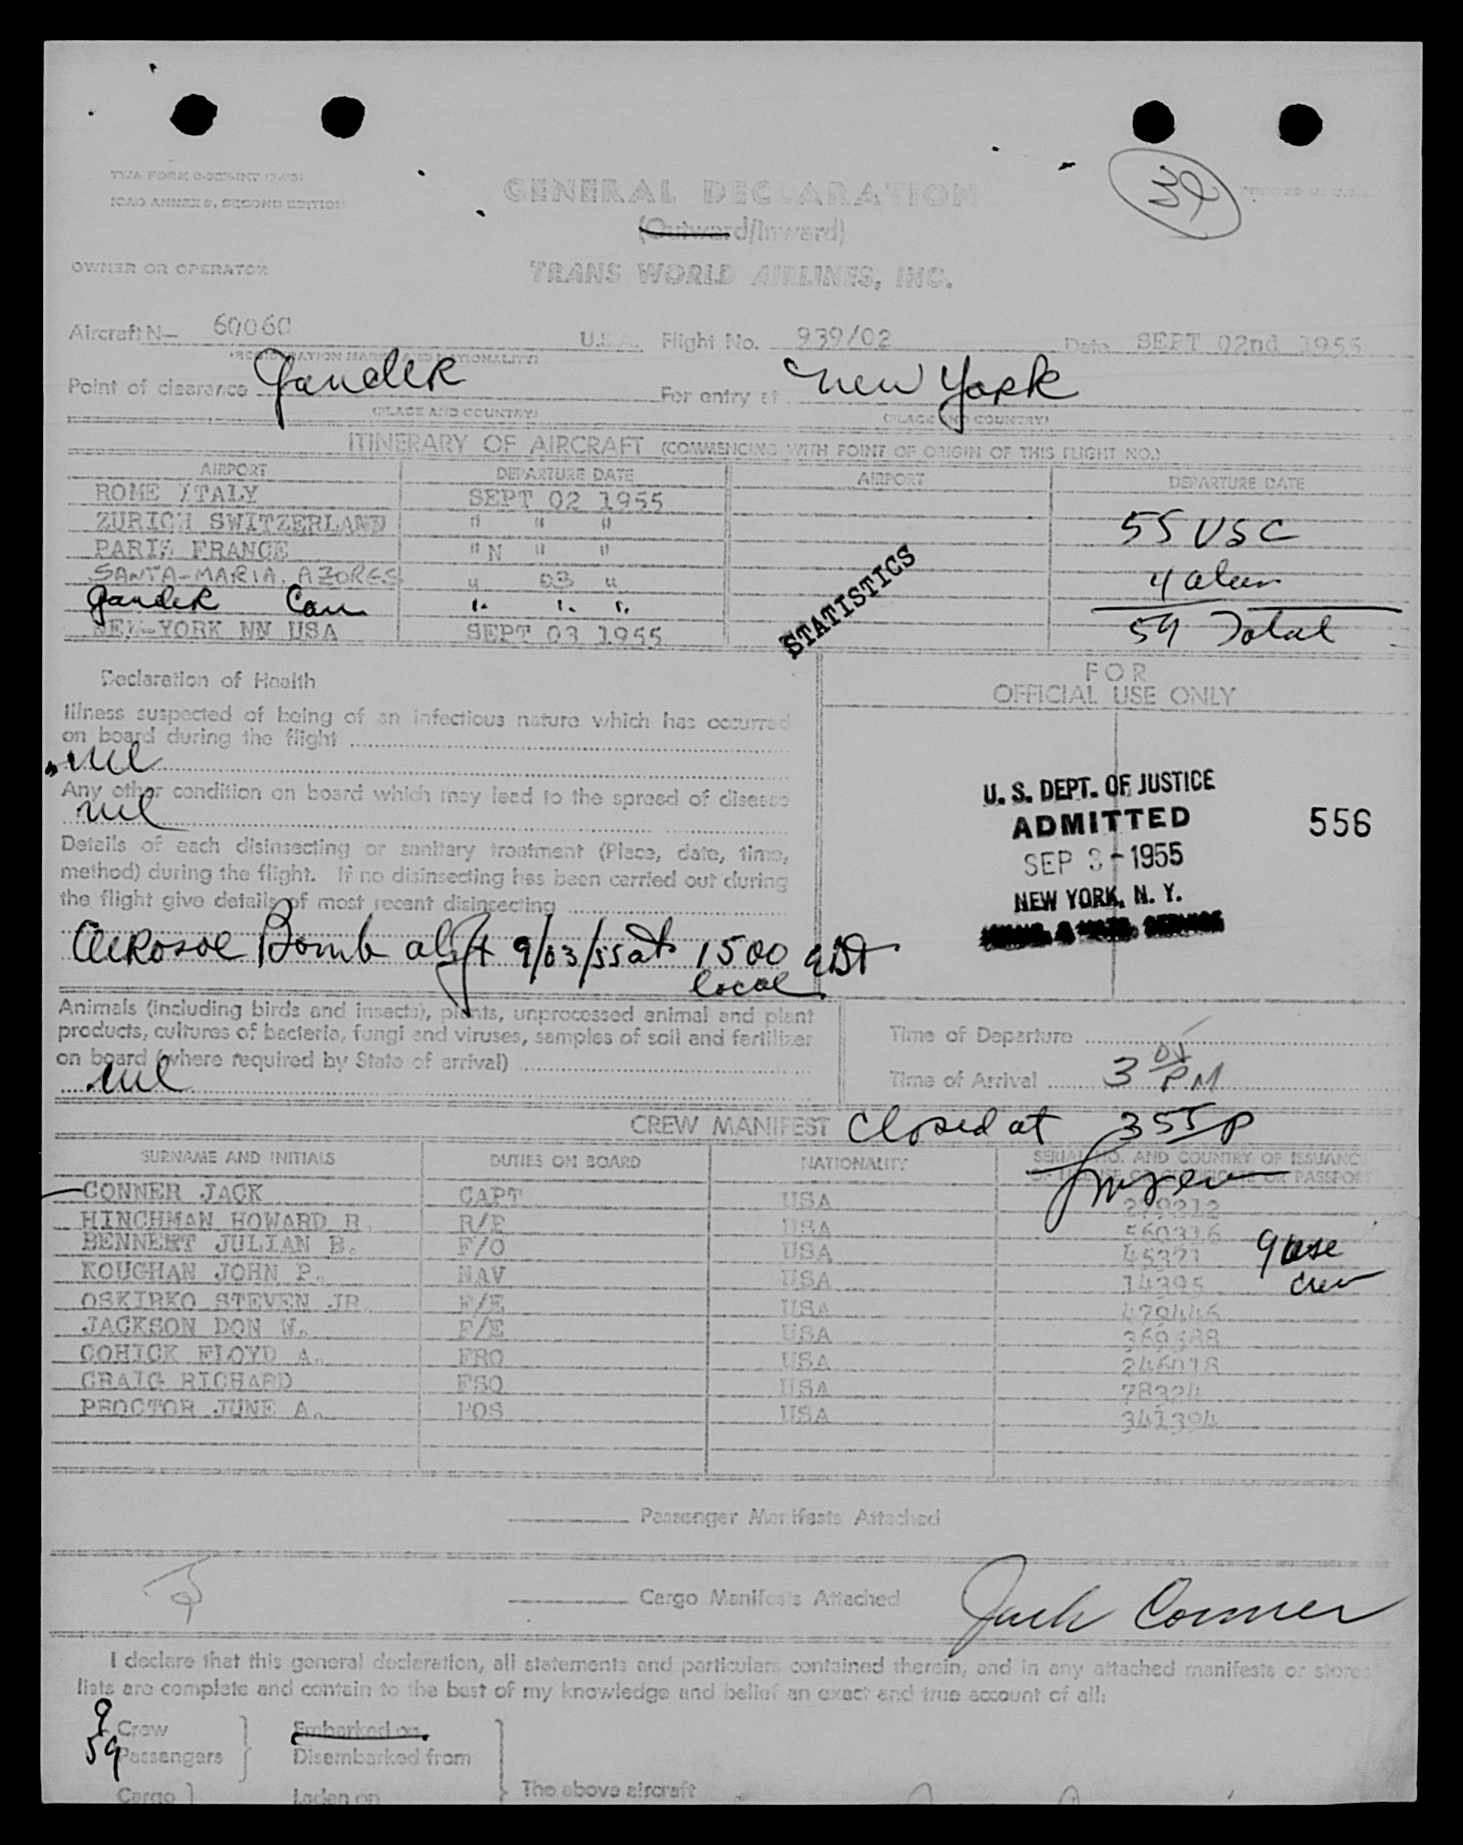 TWA FORM
ICAO ANNEX 9, SECOND EDITION
39
GENERAL DECLARATION
(Outward/Inward)
OWNER OR OPERATOR
TRANS WORLD AIRLINES, INC.
Aircraft N— 6006C U.S.A. Flight No. 939/02 Date SEPT 02nd 1955
(REGISTRATION MARKS AND NATIONALITY)
Point of clearance Gander For entry at New York
(PLACE AND COUNTRY) (PLACE AND COUNTRY)
ITINERARY OF AIRCRAFT (COMMENCING WITH POINT OF ORIGIN OF THIS FLIGHT NO.)
AIRPORT DEPARTURE DATE AIRPORT DEPARTURE DATE
ROME ITALY SEPT 02 1955
ZURICH SWITZERLAND " " " 55 USC
PARIS FRANCE " N " "
SANTA-MARIA, AZORES " 03 " 4 alien
Gander Can " " "
NEW-YORK NN USA SEPT 03 1955 59 Total
STATISTICS
Declaration of Health
FOR
OFFICIAL USE ONLY
Illness suspected of being of an infectious nature which has occurred
on board during the flight
nil
Any other condition on board which may lead to the spread of disease
nil
Details of each disinsecting or sanitary treatment (Place, date, time,
method) during the flight. If no disinsecting has been carried out during
the flight give details of most recent disinsecting
Aerosol Bomb aloft 9/03/55 at 1500 EDT
local
U. S. DEPT. OF JUSTICE
ADMITTED
SEP 3 - 1955
NEW YORK, N. Y.
556
Animals (including birds and insects), plants, unprocessed animal and plant
products, cultures of bacteria, fungi and viruses, samples of soil and fertilizer
on board (where required by State of arrival)
nil
Time of Departure
Time of Arrival 3 05 PM
CREW MANIFEST Closed at 355 P
SURNAME AND INITIALS DUTIES ON BOARD NATIONALITY SERIAL NO. AND COUNTRY OF ISSUANCE
OF LICENSE OR CERTIFICATE OR PASSPORT
CONNER JACK CAPT USA 279212
HINCHMAN HOWARD R. USA 560316
BENNERT JULIAN B. F/O USA 45321
KOUGHAN JOHN P. NAV USA 14395
OSKIRKO STEVEN JR F/E USA 479446
JACKSON DON W. F/E USA 369588
COHICK FLOYD A. FRO USA 246018
CRAIG RICHARD FSO USA 78324
PROCTOR JUNE A. HOS USA 341394
9 use
crew
Passenger Manifests Attached
Cargo Manifests Attached
Jack Conner
I declare that this general declaration, all statements and particulars contained therein, and in any attached manifests or stores
lists are complete and contain to the best of my knowledge and belief an exact and true account of all:
9 Crew } Embarked on
59 Passengers Disembarked from
Cargo } Laden on The above aircraft